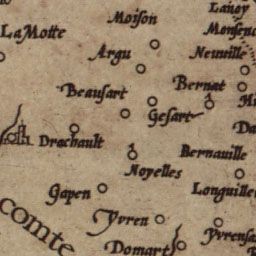 Lanoy
Moison
La Motte
Argu
Neuville
Beausart
Bernat
Gesart
Drachault
Bernauille
Noyelles
Gapen
Longuille
Yvren
comte
Domart